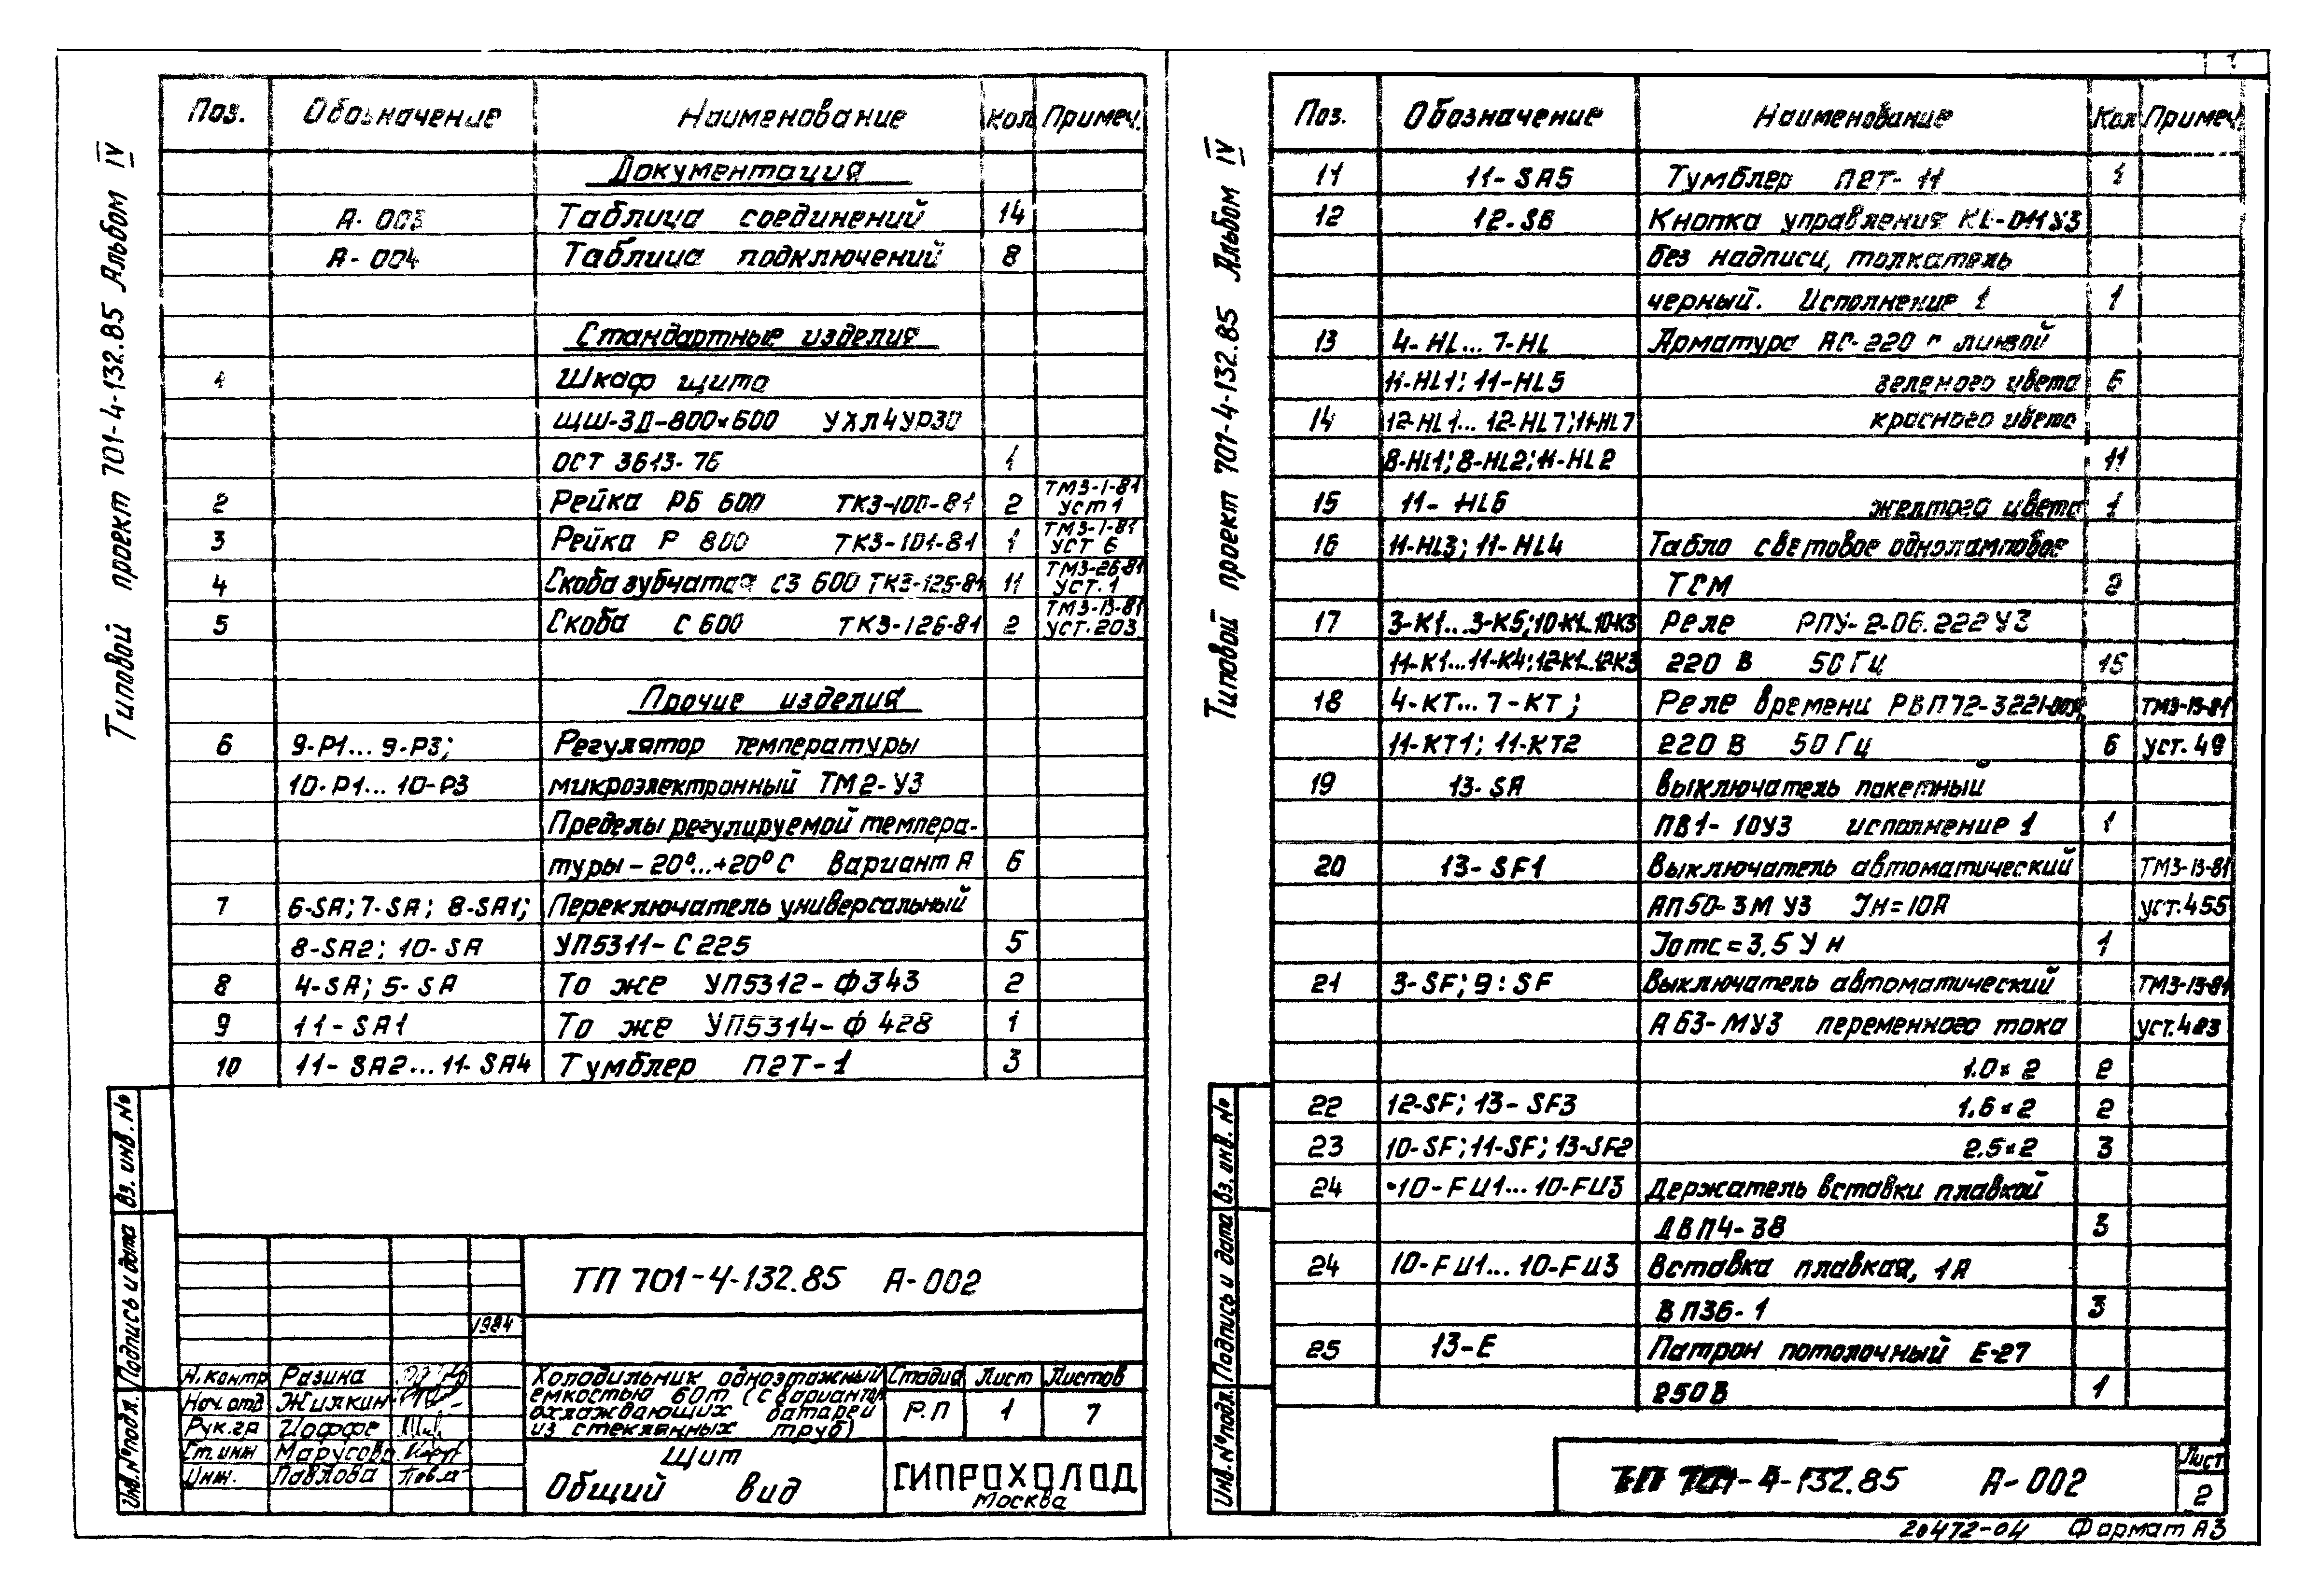 Типовой проект 701-4-132.85 Альбом IV
Поз. Обозначение Наименование Кол Примеч.
Документация
А-003 Таблица соединений 14
А-004 Таблица подключений 8
Стандартные изделия
1 Шкаф щита
ЩШ-ЗД-800×600 УХЛ4УР30
ОСТ 3613-76 1
2 Рейка РБ 600 ТК3-100-81 2 ТМ3-1-81 уст 1
3 Рейка Р 800 ТК3-101-81 1 ТМ3-1-81 уст 6
4 Скоба зубчатая СЗ 600 ТК3-125-81 11 ТМ3-26-81 уст. 1
5 Скоба С 600 ТК3-126-81 2 ТМ3-13-81 уст. 203
Прочие изделия
6 9-Р1...9-Р3; Регулятор температуры
10-Р1...10-Р3 микроэлектронный ТМ2-У3
Пределы регулируемой темпера-
туры -20°...+20°С Вариант А 6
7 6-SA; 7-SA; 8-SA1; Переключатель универсальный
8-SA2; 10-SA УП5311-С225 5
8 4-SA; 5-SA То же УП5312-Ф343 2
9 11-SA1 То же УП5314-Ф428 1
10 11-SA2...11-SA4 Тумблер П2Т-1 3
Инв.№подл. Подпись и дата Вз. инв. №
ТП 701-4-132.85 А-002
1984
Н.контр Разина
Нач.отд Жилкин
Рук.гр Иоффе
Ст.инж Марусова
Инж. Павлова
Холодильник одноэтажный
емкостью 60т (с вариантом
охлаждающих батарей
из стеклянных труб)
Стадия Лист Листов
Р.П 1 7
Щит
Общий вид
ГИПРОХОЛОД
Москва
Типовой проект 701-4-132.85 Альбом IV
Поз. Обозначение Наименование Кол Примеч.
11 11-SA5 Тумблер П2Т-11 1
12 12-SB Кнопка управления КЕ-011У3
без надписи, толкатель
черный. Исполнение 1 1
13 4-HL...7-HL Арматура АС-220 с линзой
11-HL1; 11-HL5 зеленого цвета 6
14 12-HL1...12-HL7; 11-HL7 красного цвета
8-HL1; 8-HL2; 11-HL2 11
15 11-HL6 желтого цвета 1
16 11-HL3; 11-HL4 Табло световое одноламповое
ТСМ 2
17 3-К1...3-К5; 10-К1...10-К3 Реле РПУ-2-06.222У3
11-К1...11-К4; 12-К1...12-К3 220 В 50 Гц 15
18 4-КТ...7-КТ; Реле времени РВП72-3221-00У4 ТМ3-13-81
11-КТ1; 11-КТ2 220 В 50 Гц 6 уст. 49
19 13-SA Выключатель пакетный
ПВ1-10У3 исполнение 1 1
20 13-SF1 Выключатель автоматический ТМ3-13-81
АП50-3М У3 Jн=10А уст.455
Jотс=3,5 Ун 1
21 3-SF; 9:SF Выключатель автоматический ТМ3-13-81
А63-МУ3 переменного тока уст.423
1.0×2 2
22 12-SF; 13-SF3 1.6×2 2
23 10-SF; 11-SF; 13-SF2 2.5×2 3
24 10-FU1...10-FU3 Держатель вставки плавкой
ДВП4-38 3
24 10-FU1...10-FU3 Вставка плавкая, 1А
ВП36-1 3
25 13-Е Патрон потолочный Е-27
250В 1
Инв.№подл. Подпись и дата Вз. инв. №
ТП 701-4-132.85 А-002
Лист
2
20472-04 Формат А3